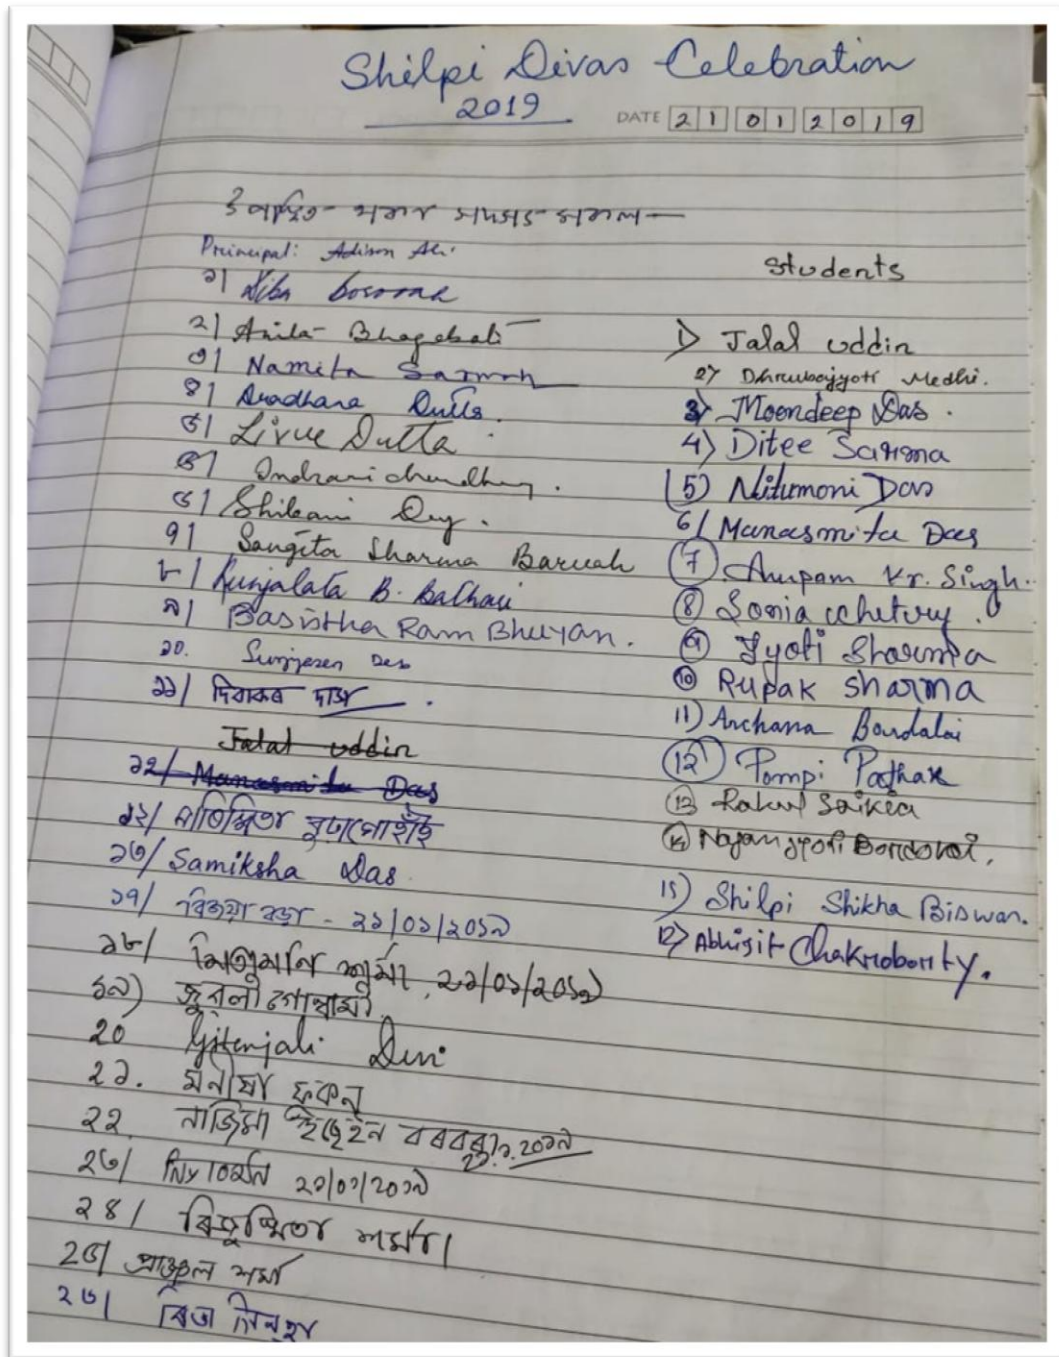 Shilpi Divas Celebration
2019
DATE 21 01 2019
উপস্থিত থকা সদস্যসকল—
Principal: Adison Ali
১| Diba
২| Anita Bhagabati
৩| Namita Sarmah
৪| Aradhana Dutta.
৫| Livue Dutta
৬| Indrani
৬| Shibani Dey.
৭| Sangita Sharma Baruah
৮| Kunjalata B.
৯| Basistha Ram Bhuyan.
১০. Des
১১/ দিবাকৰ দাস
Jalal uddin
১২/ Manasmita Das
১২/ বুঢ়াগোহাঁই
১৬/ Samiksha Das
১৭/ বিজয়া বড়া - ২১/০১/২০১৯
১৮/ মিতুমণি শৰ্মা, ২১/০১/২০১৯
১৯) জুৰলী গোস্বামী
20 Gitanjali Devi
২১. মনীষা ফুকন
২২. নাজিমা বৰবৰা ২১.১.২০১৯
২৩/ ২১/০১/২০১৯
২৪/ শৰ্মা|
২৫| প্ৰাঞ্জল শৰ্মা
২৬| ৰিতা
Students
1) Jalal uddin
2) Dhrubajyoti Medhi.
3) Moondeep Das.
4) Ditee Sarma
(5) Nitumoni Das
6/ Manasmita Das
7 Anupam Kr. Singh.
8 Sonia Chetury.
9 Jyoti Sharma
10 Rupak Sharma
11) Archana Bordalai
12 Pompi Pathak
13 Rahul Saikia
14 Nayanjyoti Bordoloi.
15) Shilpi Shikha Biswas.
12) Abhijit Chakroborty.